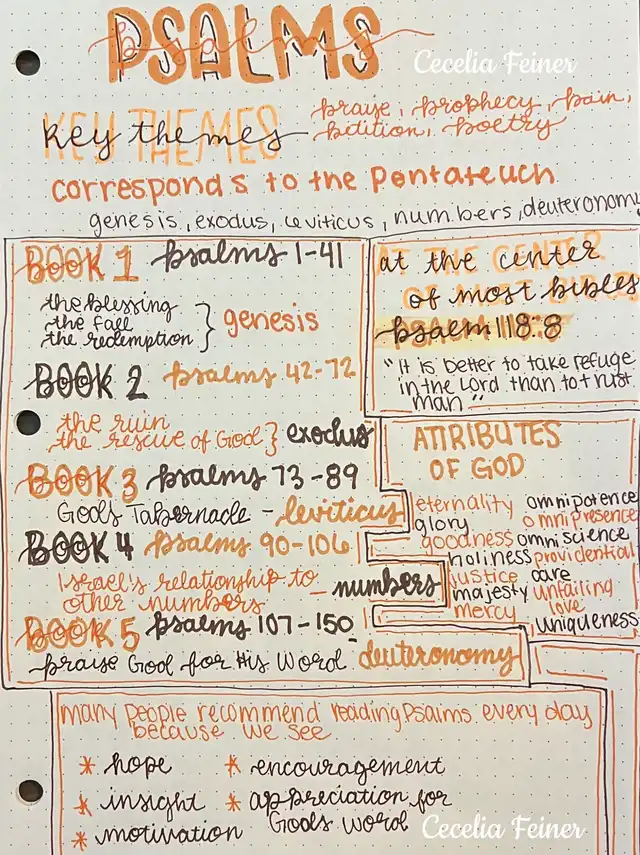 PSALMS
psalms
Cecelia Feiner
KEY THEMES
key themes
praise, prophecy, pain,
petition, poetry
corresponds to the Pentateuch
genesis, exodus, leviticus, numbers, deuteronomy
BOOK 1 psalms 1-41
the blessing
the fall
the redemption } genesis
BOOK 2 psalms 42-72
the ruin
the rescue of God } exodus
BOOK 3 psalms 73-89
God's Tabernacle - leviticus
BOOK 4 psalms 90-106
Israel's relationship to
other numbers - numbers
BOOK 5 psalms 107-150
praise God for His Word - deuteronomy
at the center
of most bibles
psalm 118:8
"it is better to take refuge
in the Lord than to trust
man"
ATTRIBUTES
OF GOD
eternality
glory
goodness
holiness
justice
majesty
mercy
omnipotence
omnipresence
omniscience
providential
care
unfailing
love
uniqueness
many people recommend reading Psalms every day
because we see
* hope
* insight
* motivation
* encouragement
* appreciation for
God's word
Cecelia Feiner